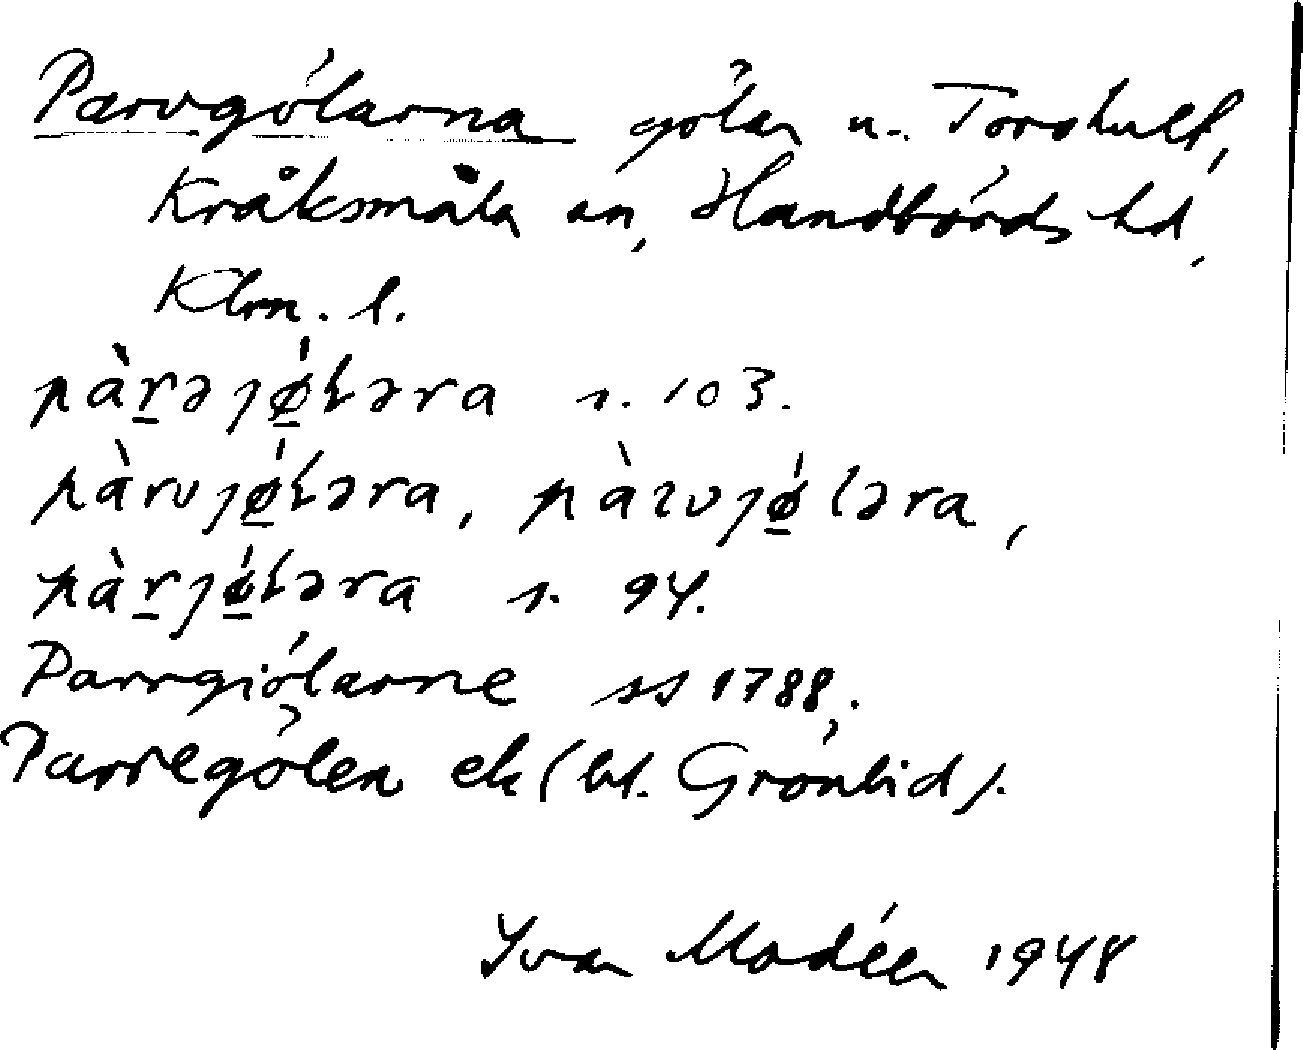 Parvgölarna gölar u. Torshult,
Kråksmåla sn, Handbörds hd,
Klm. l.
pàr̲əjǿ̲ɫəra s. 103.
pàrvjǿ̲ɫəra, pàrvjǿ̲ləra,
pàr̲jǿ̲ɫəra s. 94.
Parrgiölarne ss 1788.
Parregölen ek (bl. Grönlid).
Ivar Modéer 1948